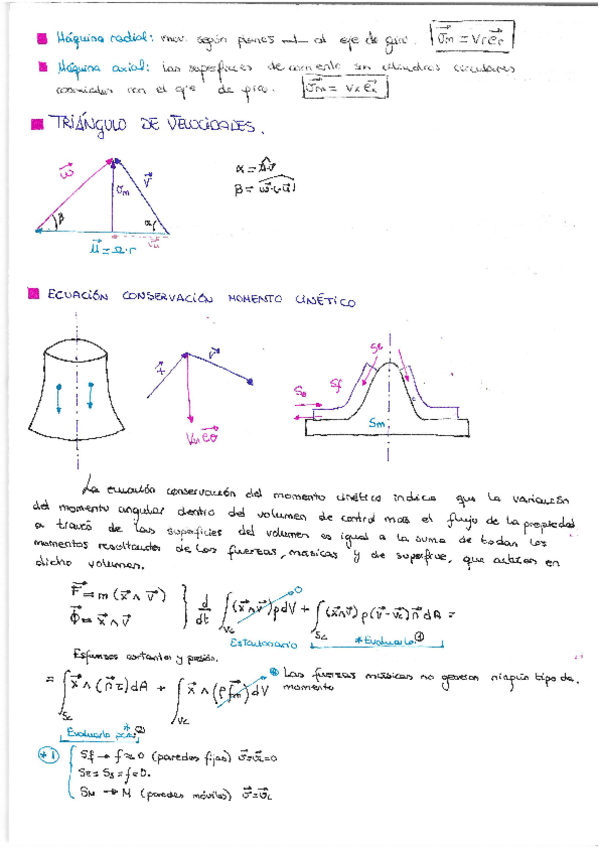 Máquina radial: mov. según planos ⊥ al eje de giro. v⃗m = Vr e⃗r
Máquina axial: las superficies de corriente son cilindros circulares
coaxiales con el eje de giro. v⃗m = Vx e⃗x
TRIÁNGULO DE VELOCIDADES.
w⃗ Vm V⃗ β α
α = u·v
β = w⃗·(-u⃗)
u⃗ = Ω·r
ECUACIÓN CONSERVACIÓN MOMENTO CINÉTICO
x⃗ v⃗ Vu e⃗θ
Se Sf Ss Sm
La ecuación conservación del momento cinético indica que la variación
del momento angular dentro del volumen de control mas el flujo de la propiedad
a través de las superficies del volumen es igual a la suma de todos los
momentos resultantes de las fuerzas, másicas y de superficie, que actúan en
dicho volumen.
F⃗ = m (x⃗ ∧ v⃗)
Φ⃗ = x⃗ ∧ v⃗
d/dt ∫Vc (x⃗∧v⃗) ρ dV + ∫Sc (x⃗∧v⃗) ρ (v⃗-v⃗c) n⃗ dA =
0
Estacionario
*Evaluarlo ①
Esfuerzos cortantes y presión.
= ∫Sc x⃗ ∧ (n⃗ τ) dA + ∫Vc x⃗ ∧ (ρ f⃗m) dV
Las fuerzas másicas no generan ningún tipo de
momento
Evaluarlo * ②
*1 Sf → f = 0 (paredes fijas) v⃗=v⃗c=0
Se = Ss = f = 0.
SM → M (paredes móviles) v⃗=v⃗c